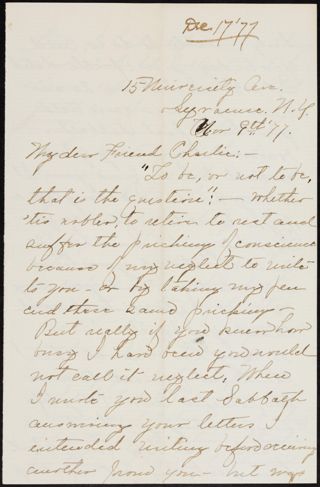 Dec 17 '77
15 University Ave.
Syracuse. N.Y.
Nov 9th '77.
My dear Friend Charlie:-
"To be, or not to be,
that is the question":- whether
'tis nobler to retire to rest and
suffer the pricking of conscience
because of my neglect to write
to you - or by taking my pen
end these same prickings.
But really if you knew how
busy I have been you would
not call it neglect. When
I wrote you last Sabbath
answering your letters I
intended writing before receiving
another from you - but